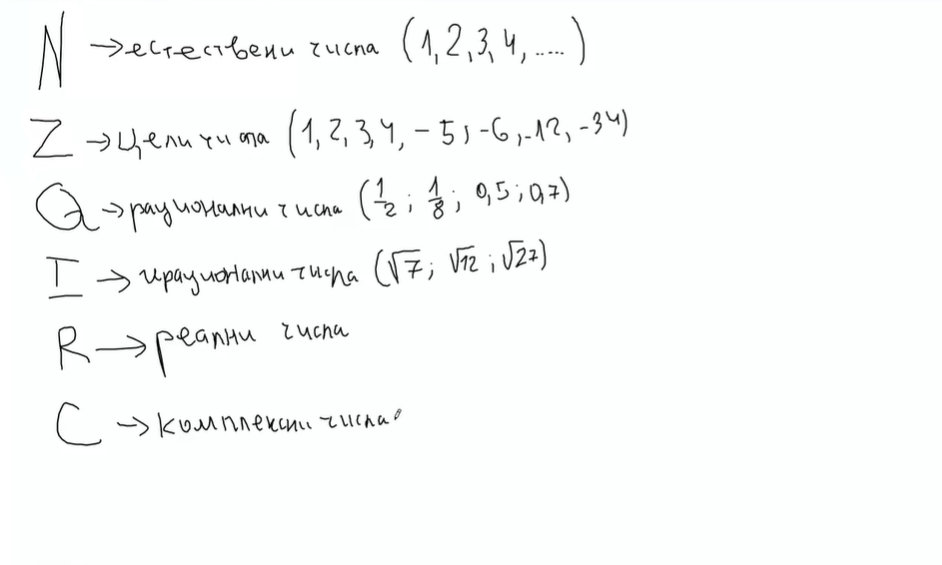 N → естествени числа (1, 2, 3, 4, .....)
Z → цели числа (1, 2, 3, 4, -5, -6, -12, -34)
Q → рационални числа (1/2; 1/8; 0,5; 0,7)
I → ирационални числа (√7; √12; √27)
R → реални числа
C → комплексни числа